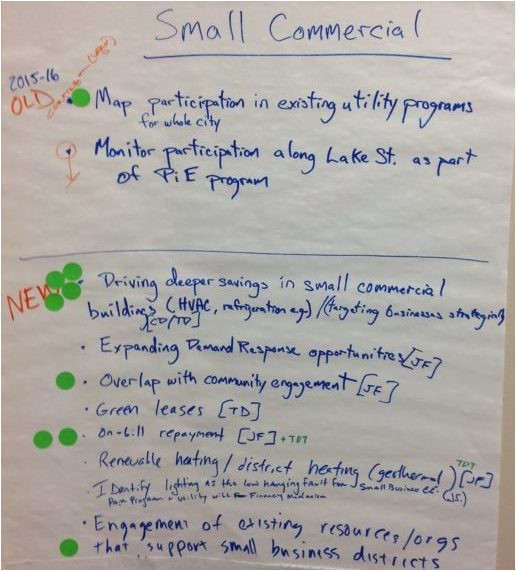 Small Commercial
2015-16
OLD
• Map participation in existing utility programs
for whole city
• Monitor participation along Lake St. as part
of PiE program
NEW
• Driving deeper savings in small commercial
buildings (HVAC, refrigeration e.g.) / (targeting businesses strategically
[CD/TD]
• Expanding Demand Response opportunities [JF]
• Overlap with community engagement [JF]
• Green leases [TD]
• On-bill repayment [JF] + TDT
• Renewable heating / district heating (geothermal) [JF]
TDT
• Identify lighting as the low hanging for Small Business
Program utility with Financy
• Engagement of existing resources/orgs
that support small business districts